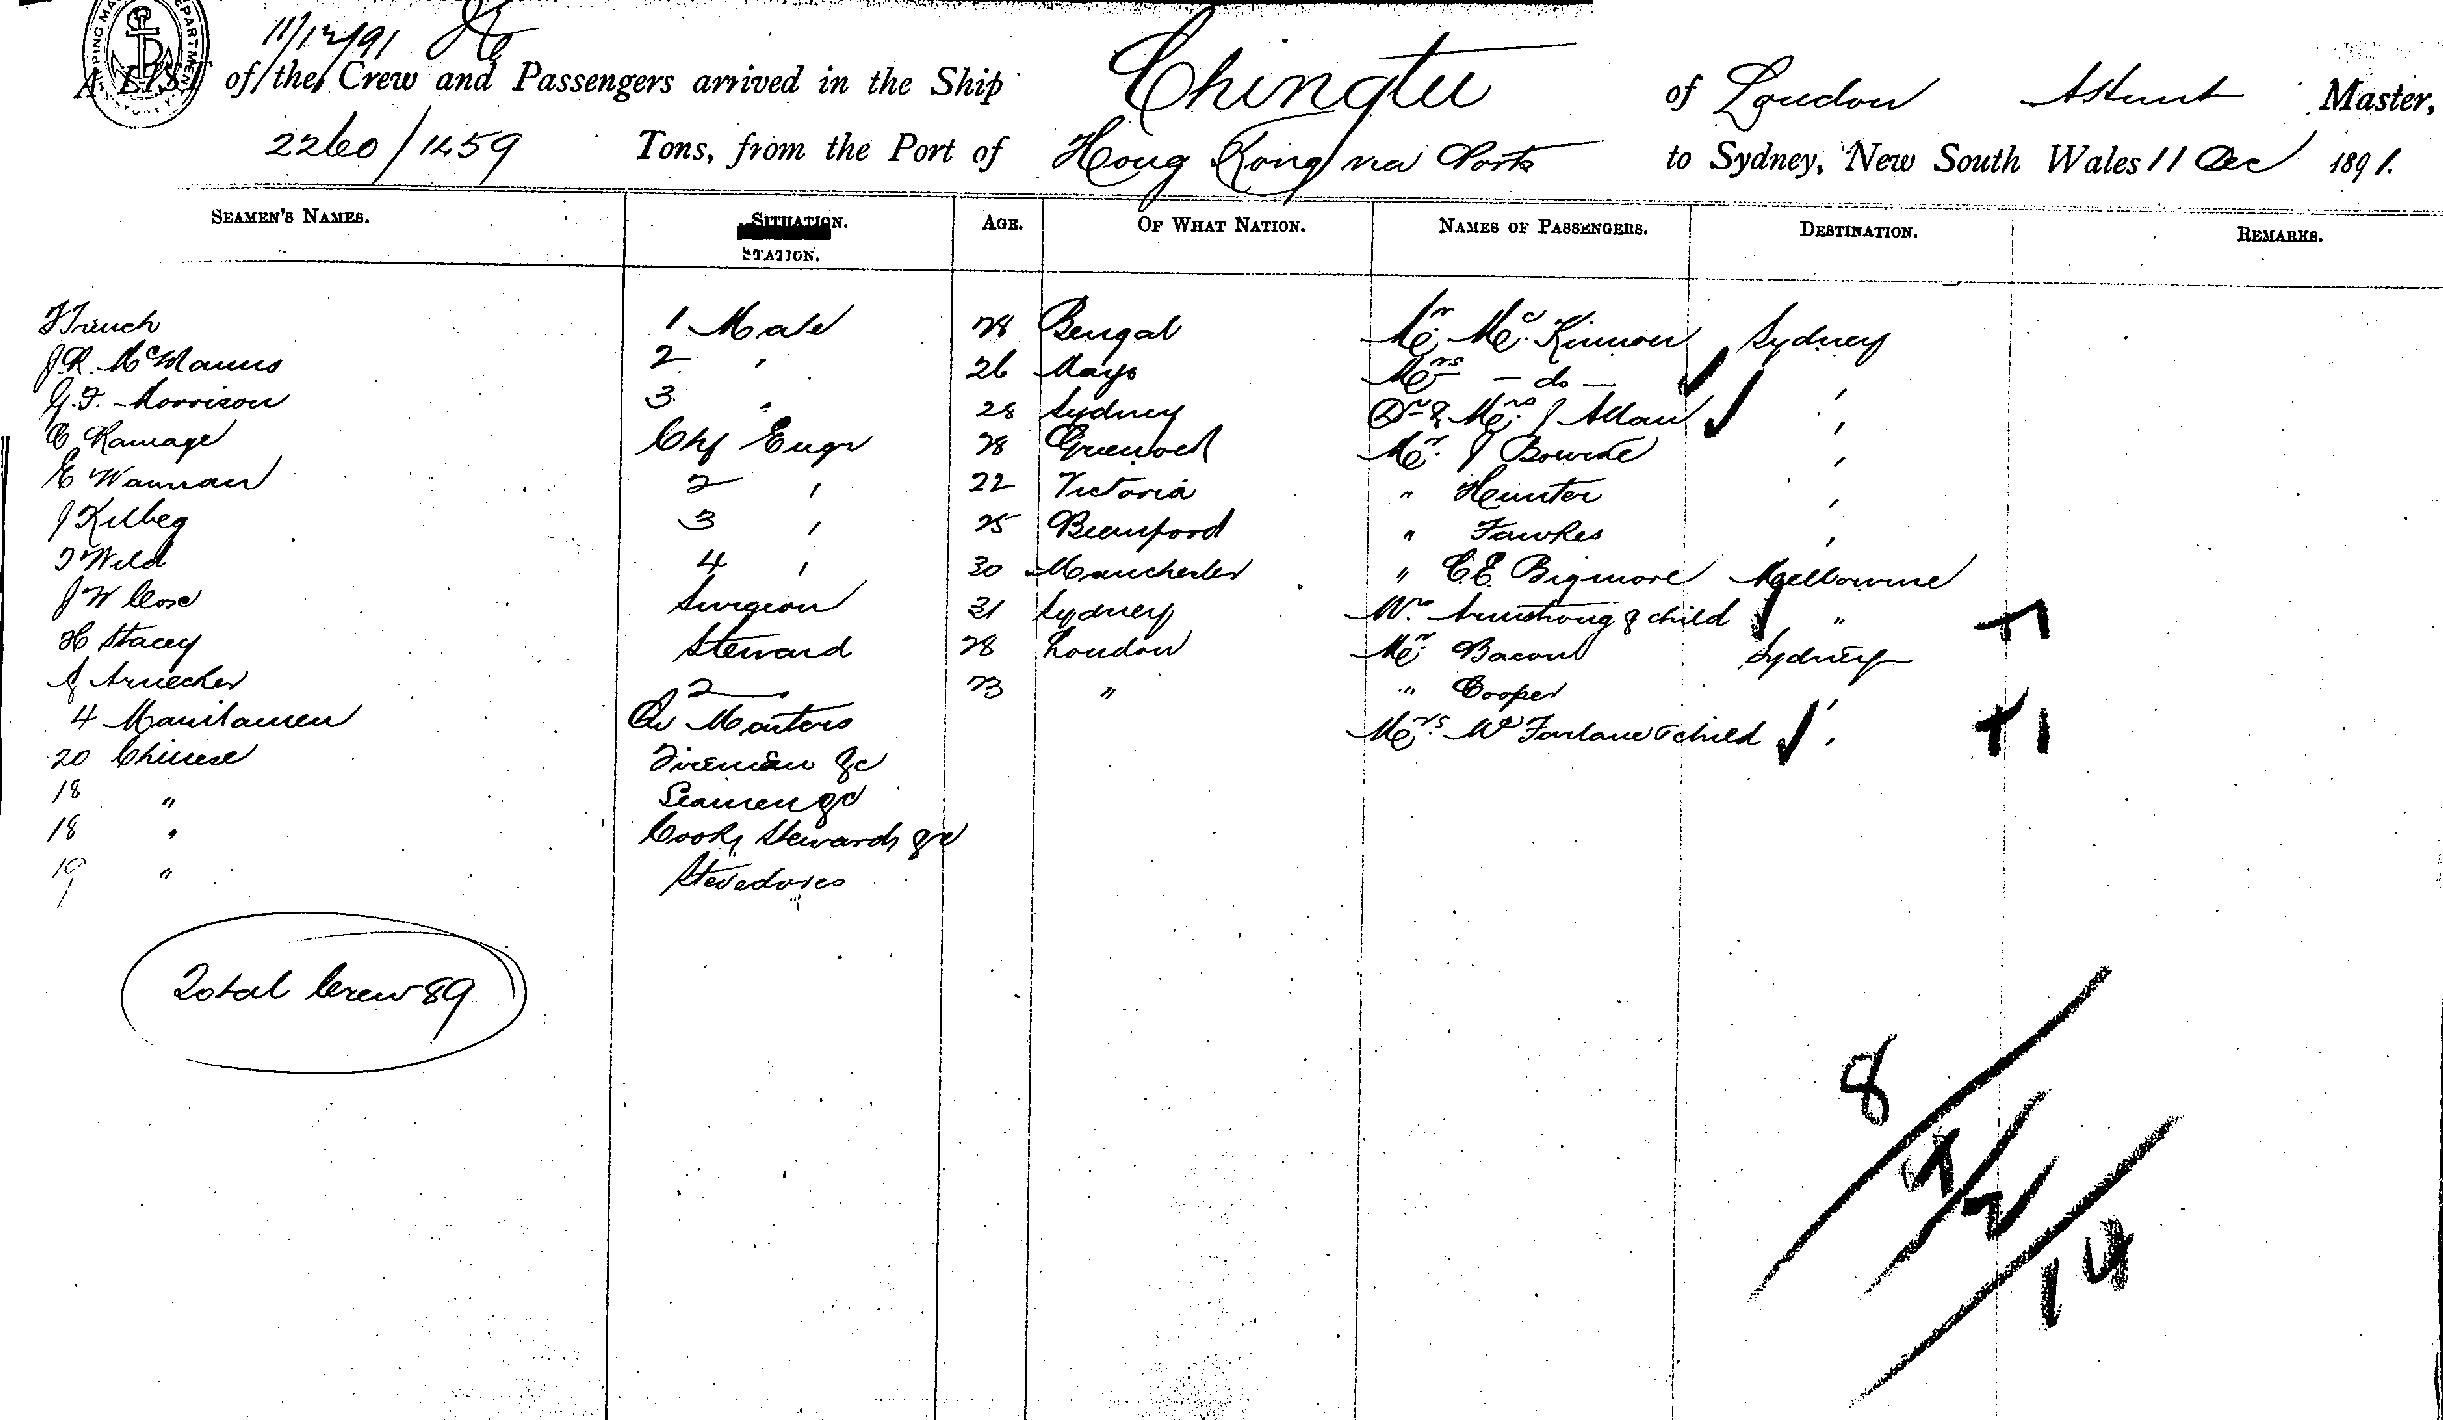 11/12/91
A LIST of the Crew and Passengers arrived in the Ship Chingtu of London Master,
2260/1459 Tons, from the Port of Hong Kong via Ports to Sydney, New South Wales 11 Dec 1891.
SEAMEN'S NAMES. SITUATION. AGE. OF WHAT NATION. NAMES OF PASSENGERS. DESTINATION. REMARKS.
STATION.
1 Mate 28 Bengal Mr. Mc.Kinnon Sydney
J R. McManus 2 " 26 Mayo Mrs — do —
G. F. Morrison 3 " 28 Sydney Dr & Mrs. J Allan "
C Ramage Chf Engr 28 Greenock Mr. J "
E Wannan 2 " 22 Victoria " Hunter "
J 3 " 25 " Fawkes "
T Wild 4 " 30 Manchester " C.E. Bigmore Melbourne
J W Close Surgeon 31 Sydney Mrs. Armstrong & child "
H Stacey Steward 28 London Mr. Bacon Sydney
2 " 23 " " Cooper
4 Manilamen Qr Masters Mrs. McFarlane & child " + 1
20 Chinese Firemen &c
18 " Seamen &c
18 " Cooks, Stewards &c
19 " Stevedores
Total Crew 89
8
4/2
14